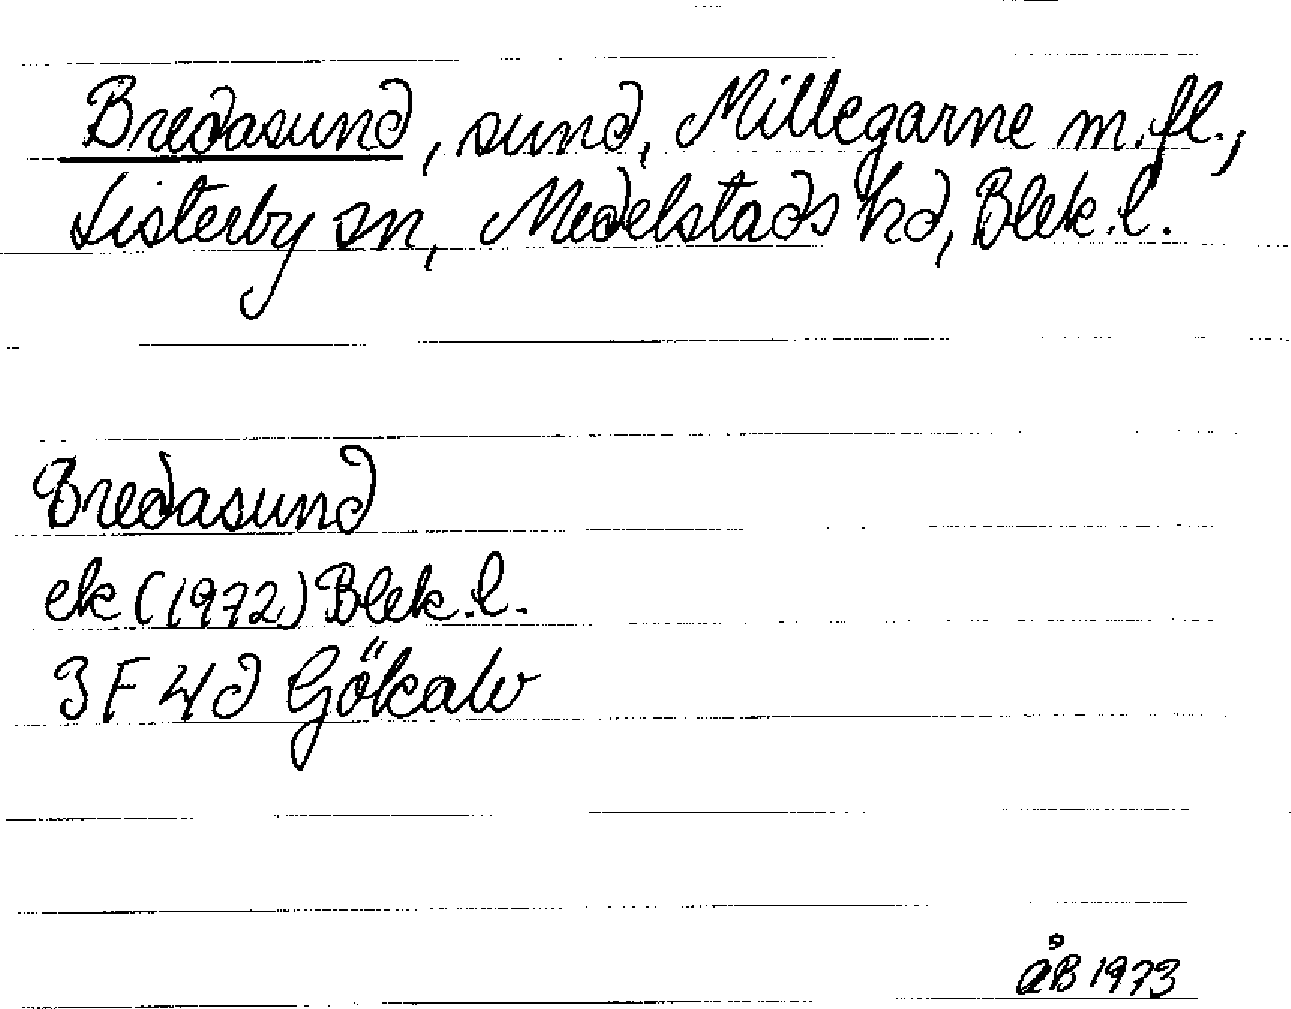 Bredasund, sund, Millegarne m.fl.,
Listerby sn, Medelstads hd, Blek. l.
Bredasund
ek (1972) Blek. l.
3 F 4d Gökalv
ÅB 1973